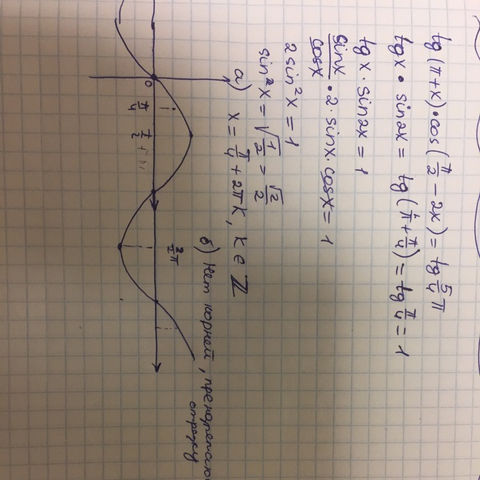 tg(π+x)·cos(π/2 − 2x) = tg 5/4 π
tg x · sin2x = tg(π + π/4) = tg π/4 = 1
tg x · sin2x = 1
sinx/cosx · 2 · sinx · cosx = 1
2 sin²x = 1
sin²x = √(1/2) = √2/2
а) x = π/4 + 2πk, k ∈ Z
б) Нет корней,
отрезку
0
π/4
π/2
3π/2